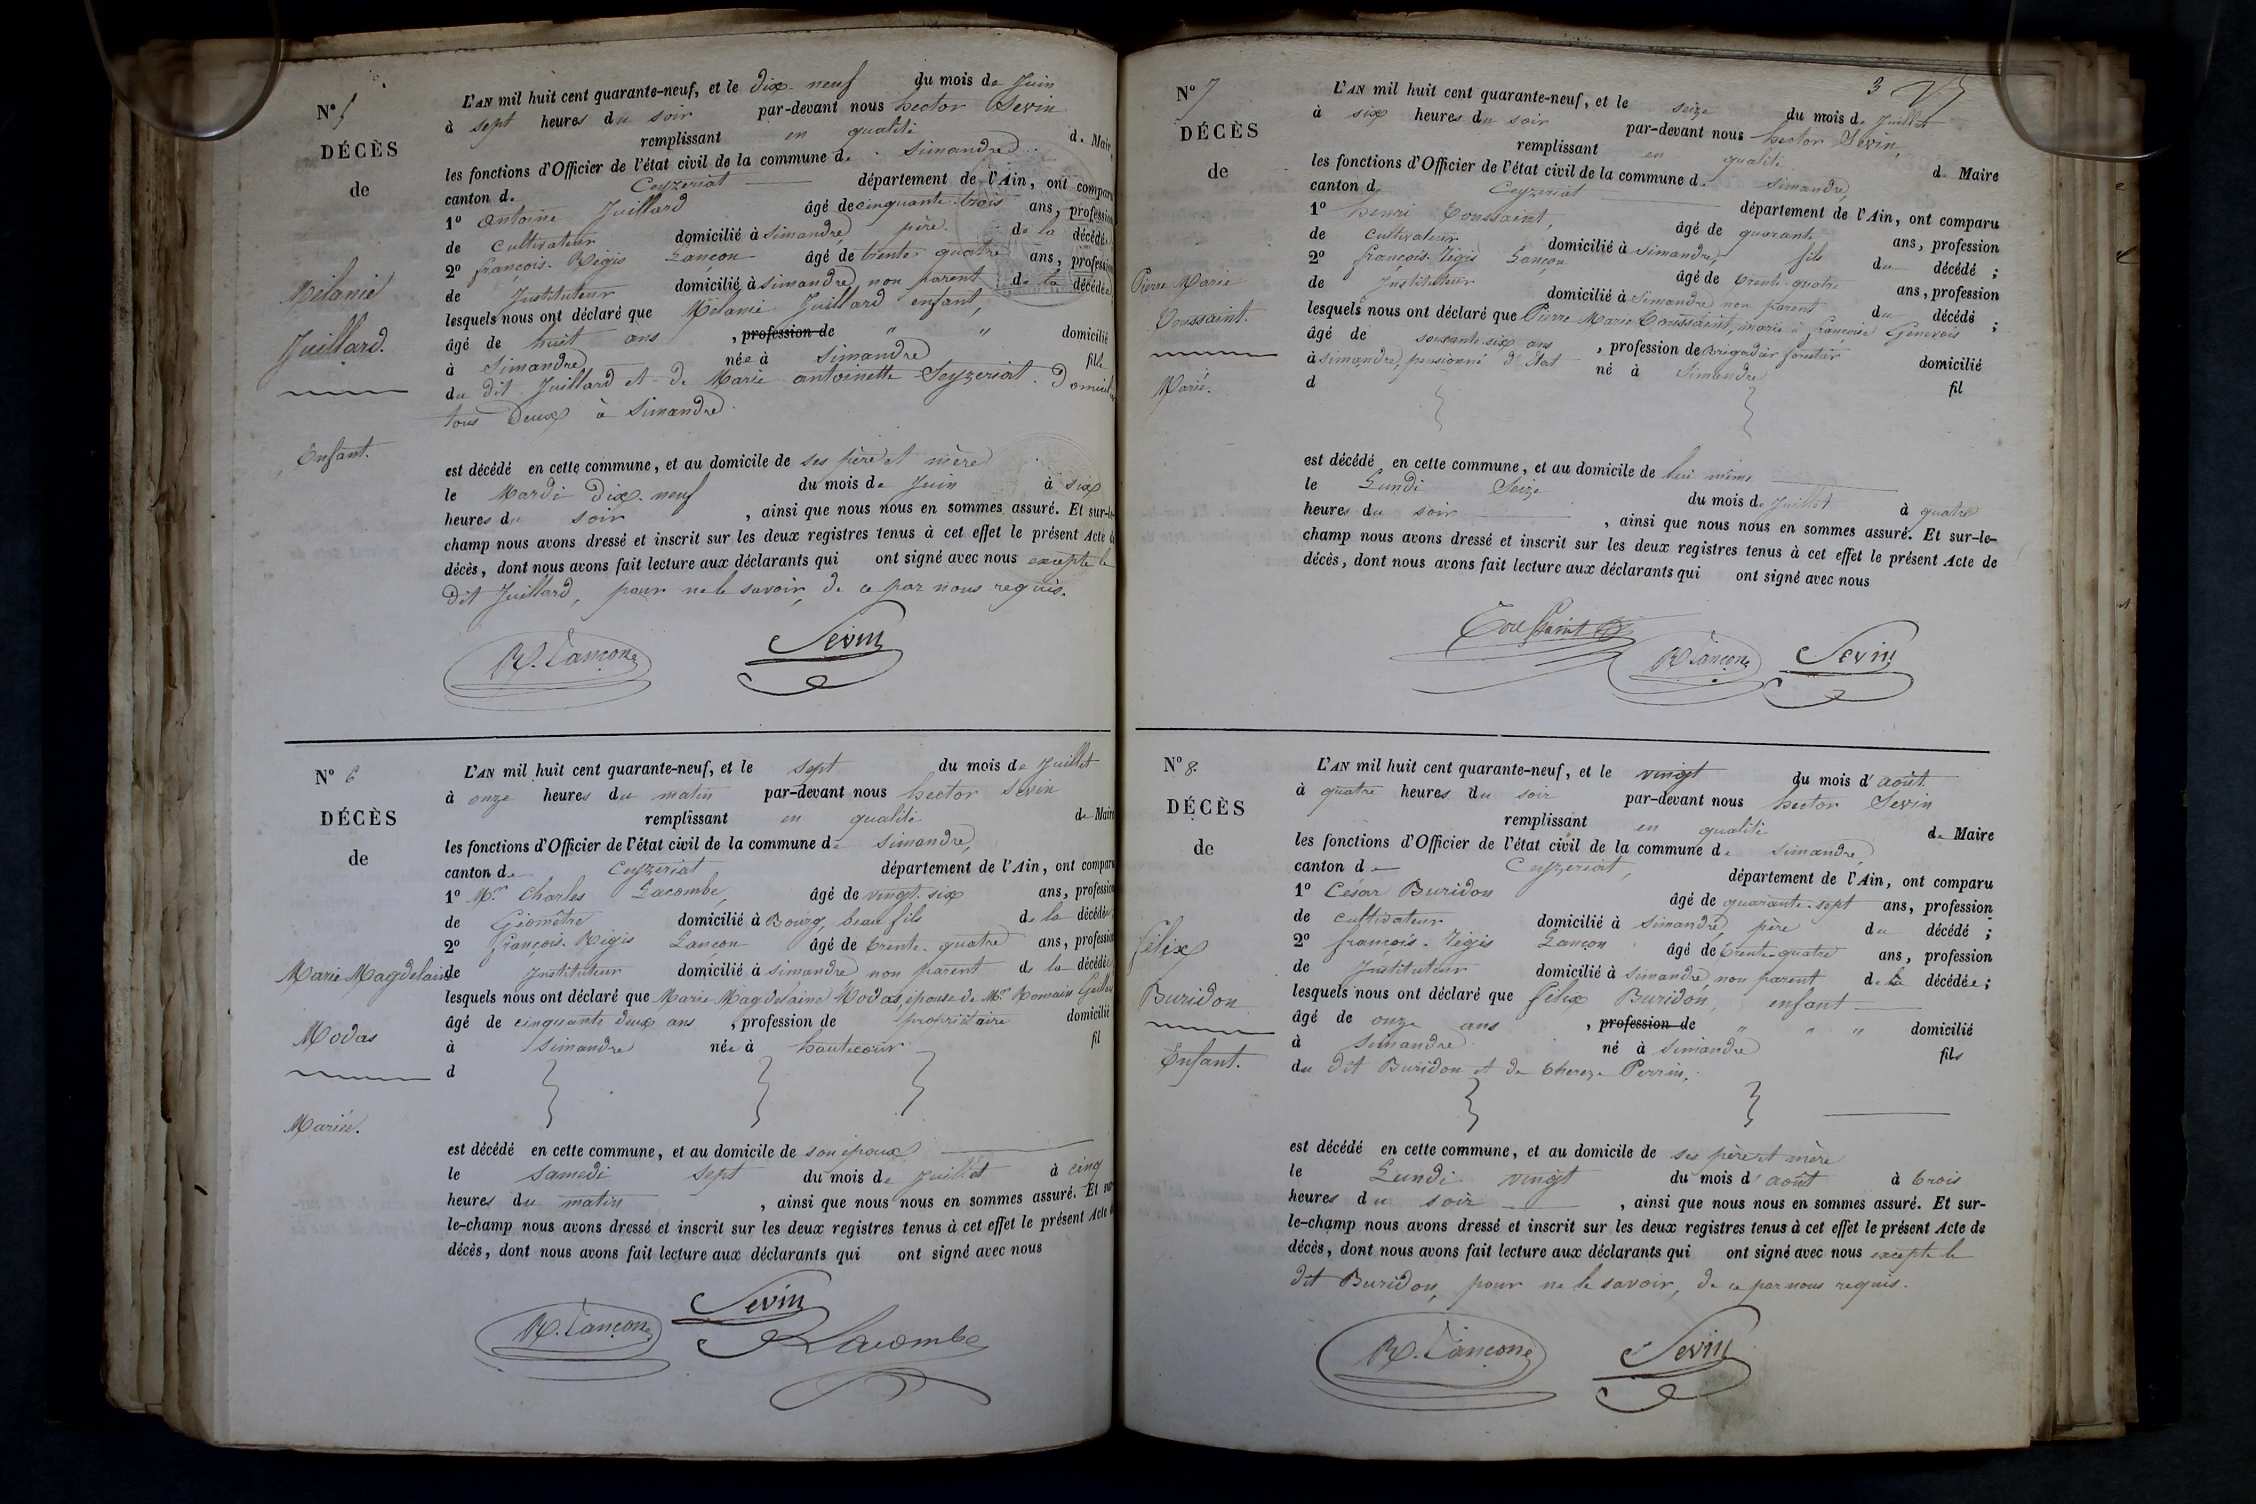 N° 5
DÉCÈS
de
Mélanie
Juillard.
Enfant.
L'AN mil huit cent quarante-neuf, et le dix-neuf du mois de Juin
à sept heures du soir par-devant nous hector Sevin
remplissant en qualité de Maire
les fonctions d'Officier de l'état civil de la commune de Simandre
canton de Ceyzeriat département de l'Ain, ont comparu
1° Antoine Juillard âgé de cinquante-trois ans, profession
de cultivateur domicilié à Simandre, père de la décédée
2° françois-Régis Lançon âgé de trente-quatre ans, profession
de Instituteur domicilié à Simandre non parent de la décédée
lesquels nous ont déclaré que Mélanie Juillard enfant,
âgé de huit ans , profession de " " domicilié
à Simandre, née à Simandre fille
du dit Juillard et de Marie antoinette Seyzeriat. Domiciliés
tous deux à Simandre.
est décédé en cette commune, et au domicile de ses père et mère
le Mardi dix-neuf du mois de Juin à six
heures du soir , ainsi que nous nous en sommes assuré. Et sur-le-
champ nous avons dressé et inscrit sur les deux registres tenus à cet effet le présent Acte de
décès, dont nous avons fait lecture aux déclarants qui ont signé avec nous excepté le
dit Juillard, pour ne le savoir, de ce par nous requis.
R. Lançon Sevin
N° 6
DÉCÈS
de
Marie Magdelaine
Modas
Mariée.
L'AN mil huit cent quarante-neuf, et le sept du mois de Juillet
à onze heures du matin par-devant nous hector Sevin
remplissant en qualité de Maire
les fonctions d'Officier de l'état civil de la commune de Simandre,
canton de Ceyzeriat département de l'Ain, ont comparu
1° Mr. Charles Lacombe, âgé de vingt-six ans, profession
de Géomètre domicilié à Bourg, beau fils de la décédée
2° françois-Régis Lançon âgé de trente-quatre ans, profession
de Instituteur domicilié à Simandre non parent de la décédée
lesquels nous ont déclaré que Marie Magdelaine Modas, épouse de Mr. Romain
âgé de cinquante deux ans , profession de propriétaire domicilié
à Simandre née à hautecour fil
d
est décédé en cette commune, et au domicile de son époux
le samedi sept du mois de Juillet à cinq
heures du matin , ainsi que nous nous en sommes assuré. Et sur-
le-champ nous avons dressé et inscrit sur les deux registres tenus à cet effet le présent Acte de
décès, dont nous avons fait lecture aux déclarants qui ont signé avec nous
R. Lançon Sevin Lacombe
3
N° 7
DÉCÈS
de
Pierre Marie
Toussaint.
Marié.
L'AN mil huit cent quarante-neuf, et le seize du mois de Juillet
à six heures du soir par-devant nous hector Sevin,
remplissant en qualité de Maire
les fonctions d'Officier de l'état civil de la commune de Simandre,
canton de Ceyzeriat département de l'Ain, ont comparu
1° henri Toussaint, âgé de quarante ans, profession
de cultivateur domicilié à Simandre, fils du décédé ;
2° françois-régis Lançon âgé de trente-quatre ans, profession
de Instituteur domicilié à Simandre non parent du décédé ;
lesquels nous ont déclaré que Pierre Marie Toussaint, marié à françoise Genevois
âgé de soixante-six ans , profession de Brigadier forestier domicilié
à Simandre, pensionné d'Etat né à Simandre fil
d
est décédé en cette commune, et au domicile de lui même
le Lundi Seize du mois de Juillet à quatre
heures du soir , ainsi que nous nous en sommes assuré. Et sur-le-
champ nous avons dressé et inscrit sur les deux registres tenus à cet effet le présent Acte de
décès, dont nous avons fait lecture aux déclarants qui ont signé avec nous
Toussaint R Lançon Sevin
N° 8.
DÉCÈS
de
félix
Buridon
Enfant.
L'AN mil huit cent quarante-neuf, et le vingt du mois d'août
à quatre heures du soir par-devant nous hector Sevin
remplissant en qualité de Maire
les fonctions d'Officier de l'état civil de la commune de Simandre,
canton de Ceyzeriat, département de l'Ain, ont comparu
1° César Buridon âgé de quarante-sept ans, profession
de cultivateur domicilié à Simandre, père du décédé ;
2° françois-régis Lançon âgé de trente-quatre ans, profession
de Instituteur domicilié à Simandre, non parent de la décédée ;
lesquels nous ont déclaré que félix Buridon, enfant
âgé de onze ans , profession de " " " domicilié
à Simandre né à Simandre fils
du dit Buridon et de Thereze Perrin,
est décédé en cette commune, et au domicile de ses père et mère
le Lundi vingt du mois d'août à trois
heures du soir , ainsi que nous nous en sommes assuré. Et sur-
le-champ nous avons dressé et inscrit sur les deux registres tenus à cet effet le présent Acte de
décès, dont nous avons fait lecture aux déclarants qui ont signé avec nous excepté le
dit Buridon, pour ne le savoir, de ce par nous requis.
R. Lançon Sevin